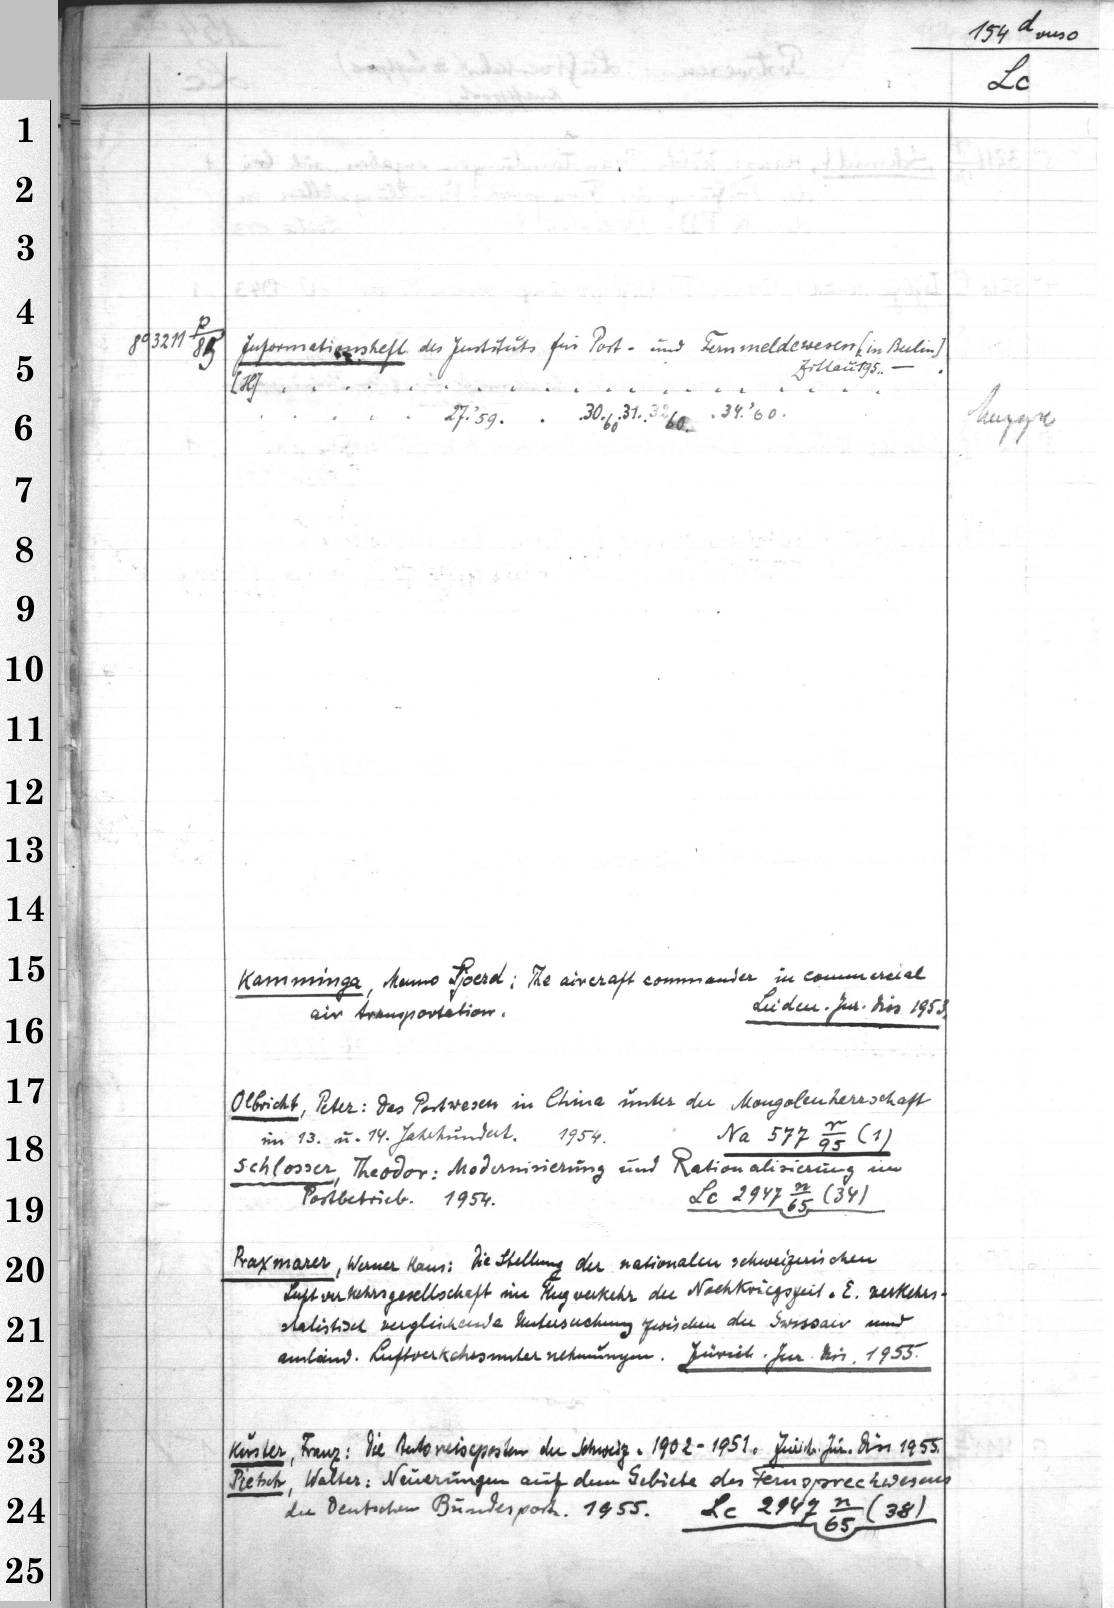 154 d verso
Lc
8° 3211 p/85 Informationsheft des Instituts für Post- und Fernmeldewesen [in Berlin]
Zittau 195.. —
[H]
27.'59. 30./60 .31. .32/60. .34.'60.
Kamminga, Menno Sjoerd: The aircraft commander in commercial
air transportation. Leiden. Jur. Diss 1953.
Olbricht, Peter: Das Postwesen in China unter der Mongolenherrschaft
im 13. u. 14. Jahrhundert. 1954. Na 577 r/95 (1)
Schlosser, Theodor: Modernisierung und Rationalisierung im
Postbetrieb. 1954. Lc 2947 n/65 (34)
Praxmarer, Werner Hans: Die Stellung der nationalen schweizerischen
Luftverkehrsgesellschaft im Flugverkehr der Nachkriegszeit. E. verkehrs-
statistisch vergleichende Untersuchung zwischen der Swissair und
ausländ. Luftverkehrsunternehmungen. Zürich. Jur. Dis. 1955.
Küster, Franz: Die Autoreiseposten der Schweiz. 1902-1951. Zürich. Jur. Diss 1955.
Pietsch, Walter: Neuerungen auf dem Gebiete des Fernsprechwesens
der Deutschen Bundespost. 1955. Lc 2947 n/65 (38)
1
2
3
4
5
6
7
8
9
10
11
12
13
14
15
16
17
18
19
20
21
22
23
24
25